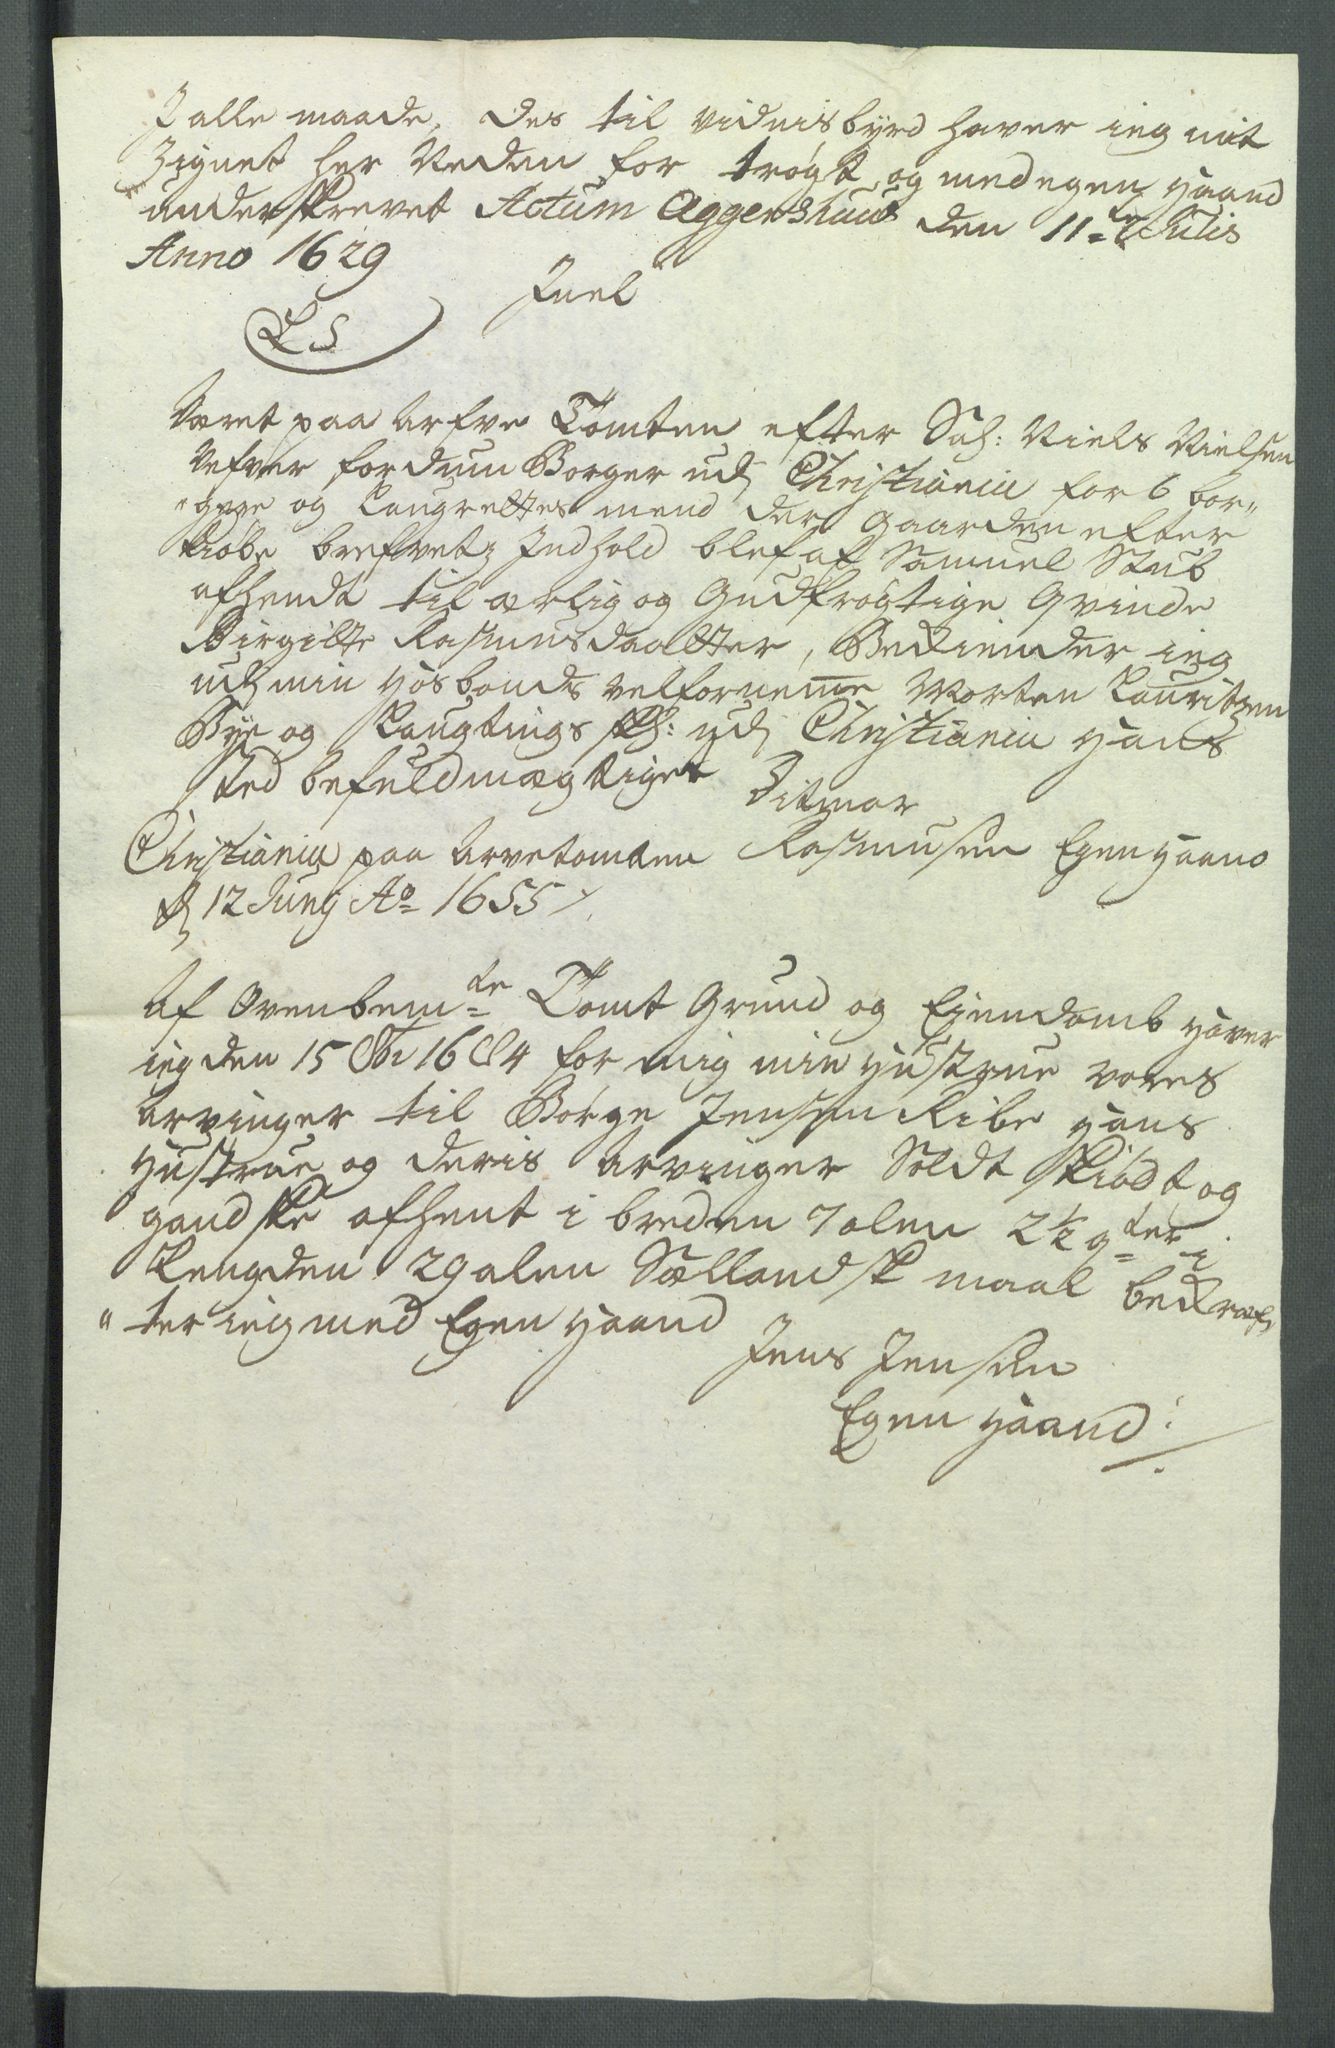 I alle maade, des til vidnisbyrd haver ieg mit
Zignet her Neden for trøgt og med egen Haand
underskrevet Actum Aggershuus den 11te Julis
Anno 1629
Juel
LS
Været paa Arfve Tomten efter Sal: Niels Nielsen
Vefver fordum Borger udj Christiania for 6 bor„
„gere og Laugrettes mend der Gaarden efter
kiøbe brefvetz Indhold blef af Samuel Stub
afhendt til ærlig og Gudfrøgtige Qvinde
Birgitte Rasmusdaatter, Bekiender ieg
udj min Hosbonds velfornemme Morten Lauritzen
Bye og Laugtings skr: udj Christiania Hans
sted befuldmægtiget
Ditmar
Christiania paa Arvetomten Rasmusen Egen Haand
d 12 Junij Ao 1655
Af Ovenbemte Tomt Grund og Eiendomb Haver
ieg den 15 16 4 for mig min Hustrue vores
Arvinger til Børge Jensen Ribe Hans
Hustrue og deris Arvinger Soldt skiødt og
gandske afhent i breden 7 alen 2½ qter i
Lengden 29 alen Sællandsk maal bekræf„
„ter ieg med Egen Haand
Jens Jensen
Egen Haand: